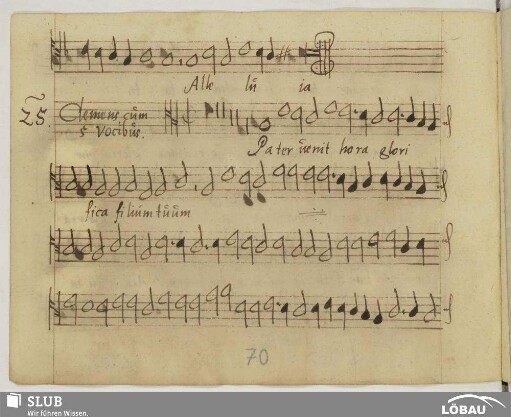 Alle lu ia
25. Clemens cum
5 Vocibus.
Pater venit hora glori
fica filium tuum
70
SLUB
Wir führen Wissen.
LÖBAU